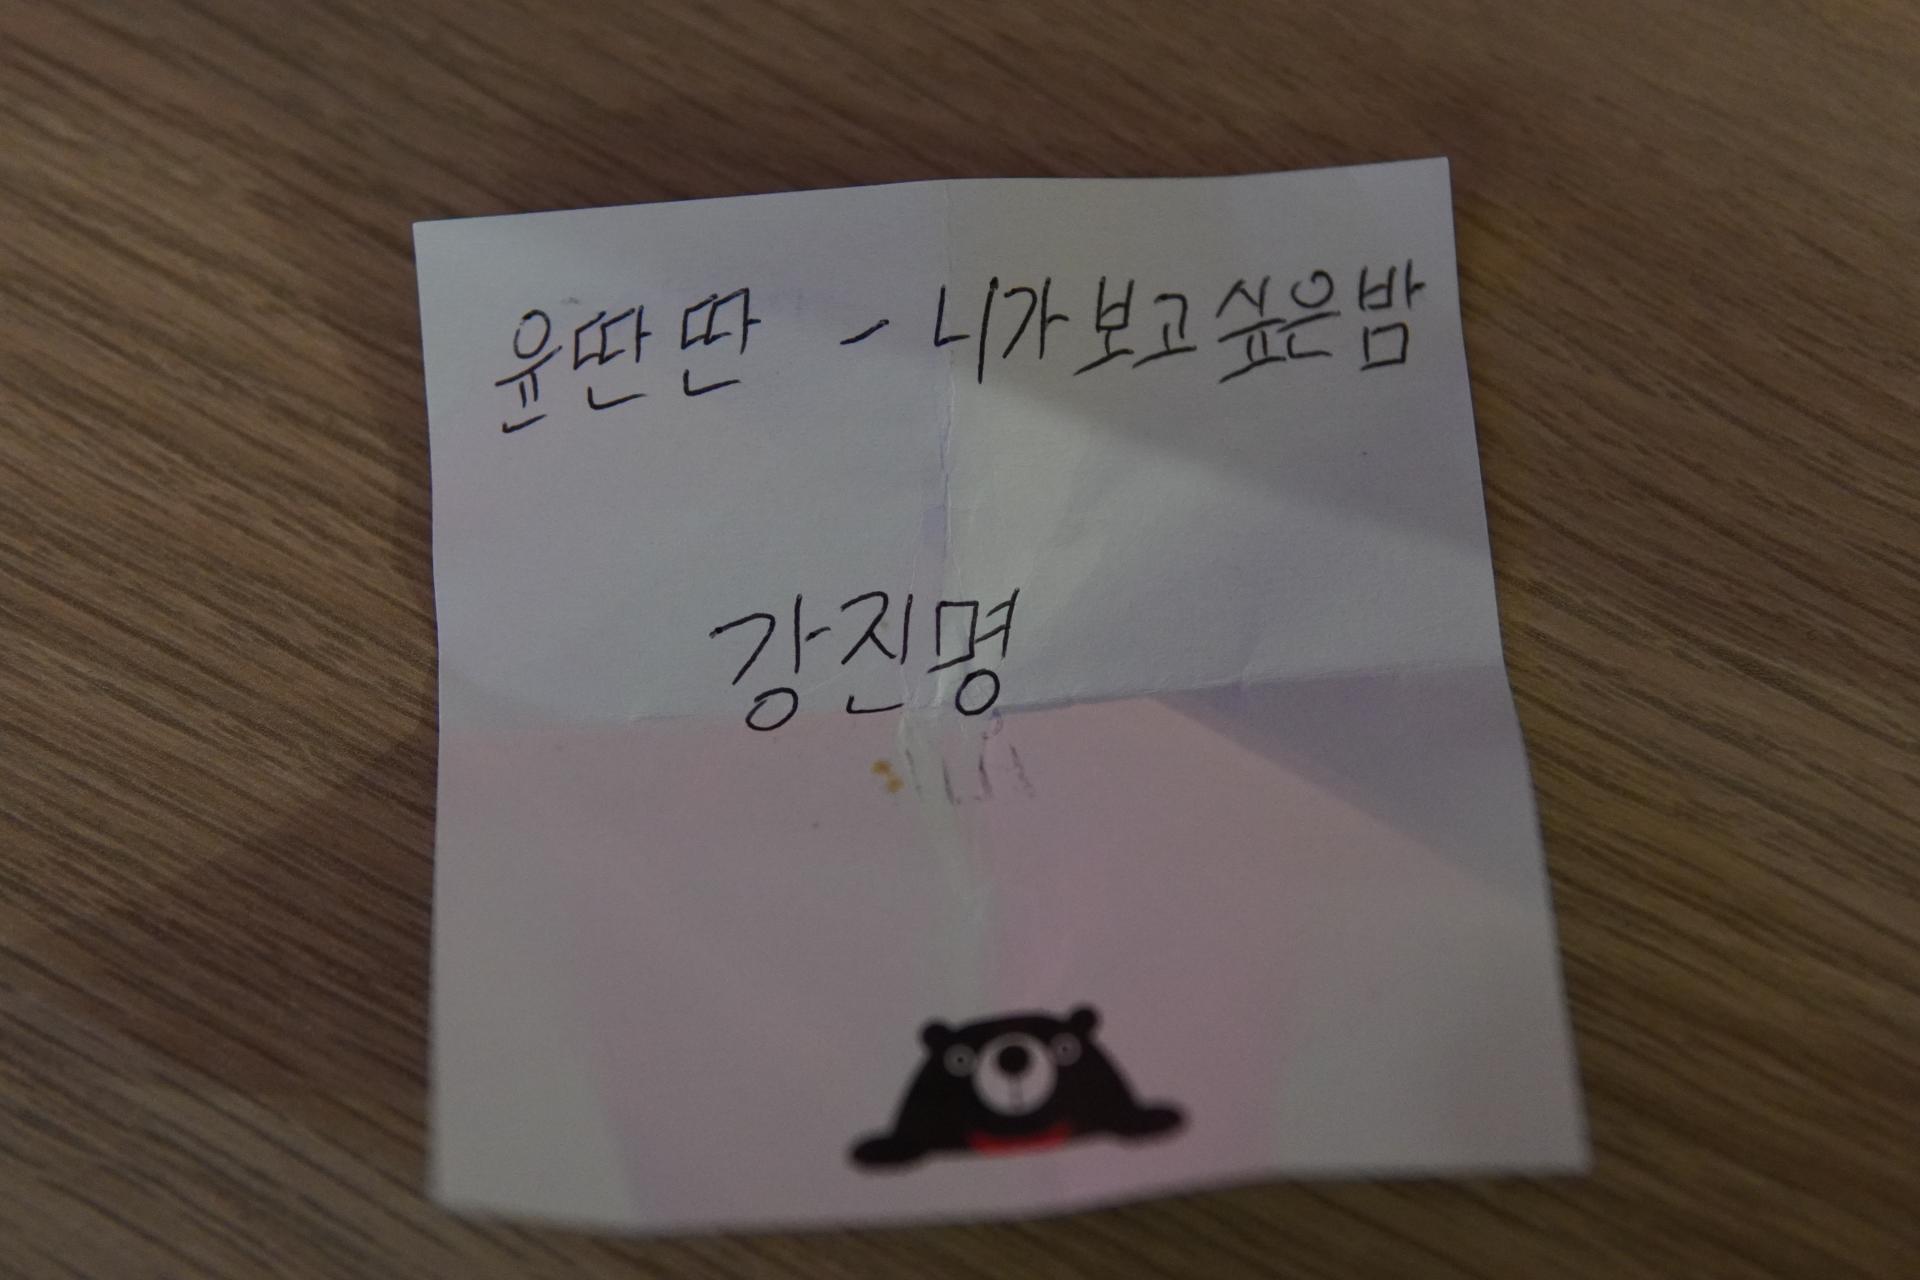 윤딴딴 - 니가 보고 싶은 밤
강진명